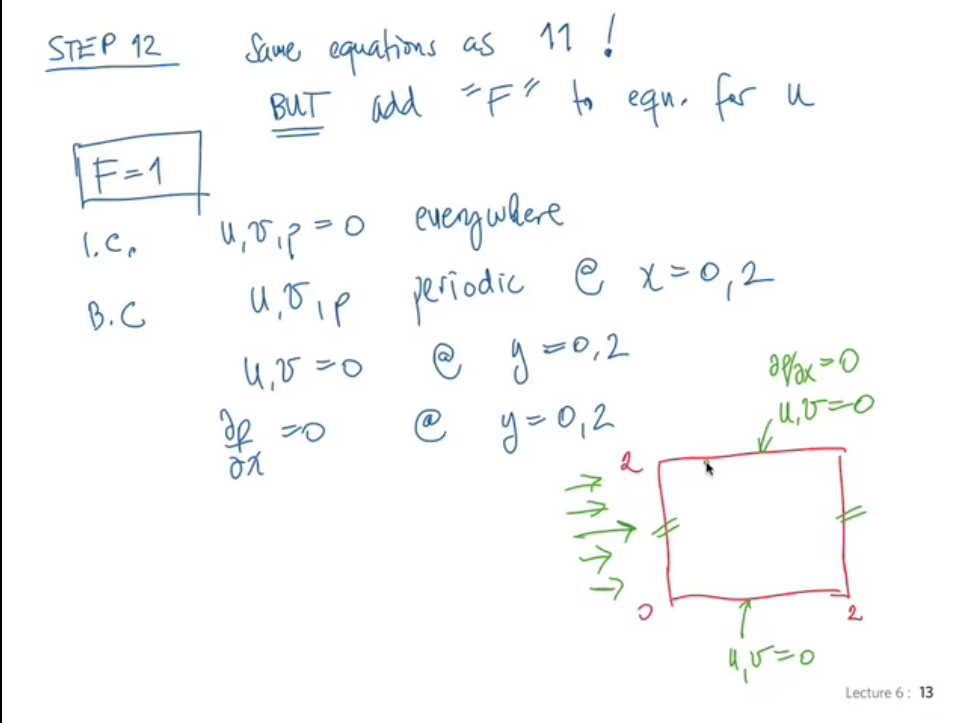 STEP 12 Same equations as 11 !
BUT add "F" to eqn. for u
F=1
I.C. u,v,p = 0 everywhere
B.C u,v,p periodic @ x=0,2
u,v = 0 @ y = 0,2
∂p/∂x = 0 @ y = 0,2
∂p/∂x = 0
u,v = 0
2
0
2
u,v = 0
Lecture 6 : 13